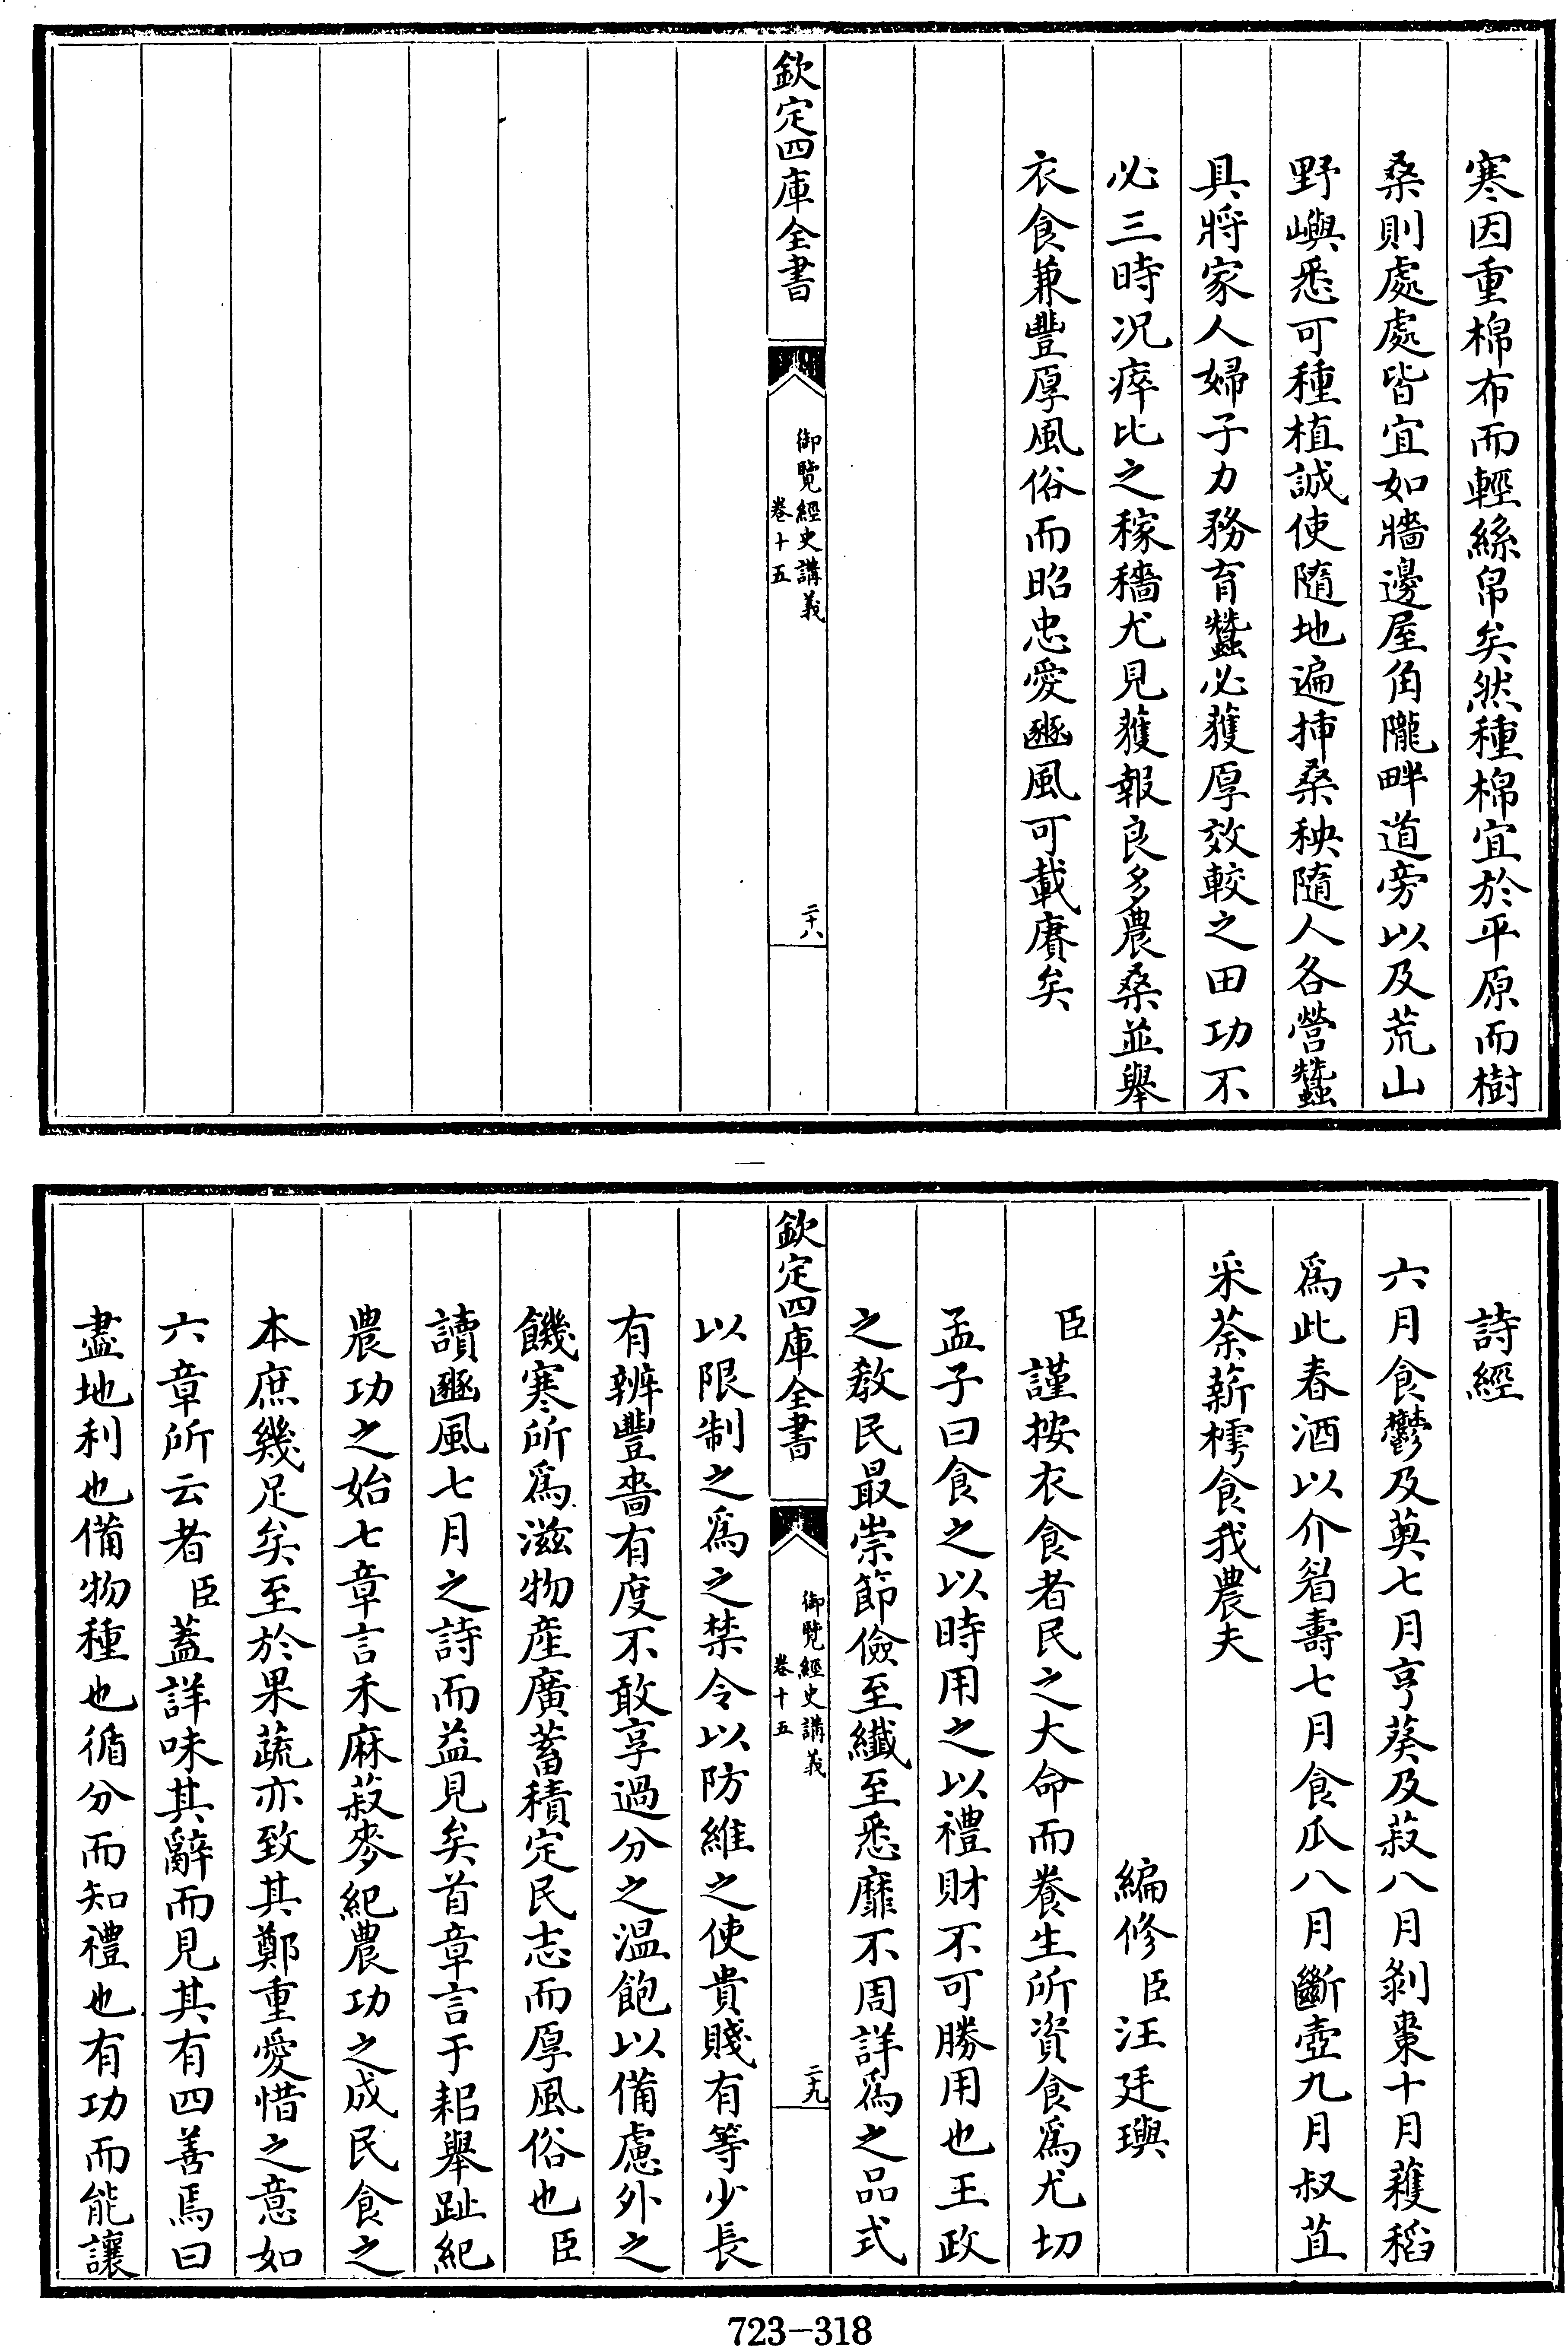 寒因重棉布而輕絲帛矣然種棉宜於平原而樹
桑則處處皆宜如牆邊屋角隴畔道旁以及荒山
野嶼悉可種植誠使隨地遍挿桑秧隨人各營蠶
具將家人婦子力務育蠶必獲厚效較之田功不
必三時况瘁比之稼穡尤見獲報良多農桑並舉
衣食兼豐厚風俗而昭忠愛豳風可載賡矣
欽定四庫全書
御覽經史講義
卷十五
二十八
詩經
六月食鬱及薁七月亨葵及菽八月剝棗十月穫稻
爲此春酒以介眉壽七月食瓜八月斷壺九月叔苴
采荼薪樗食我農夫
編修臣汪廷璵
臣謹按衣食者民之大命而養生所資食爲尤切
孟子曰食之以時用之以禮財不可勝用也王政
之教民最崇節儉至纖至悉靡不周詳爲之品式
欽定四庫全書
御覽經史講義
卷十五
二十九
以限制之爲之禁令以防維之使貴賤有等少長
有辨豐嗇有度不敢享過分之温飽以備慮外之
饑寒所爲滋物産廣蓄積定民志而厚風俗也臣
讀豳風七月之詩而益見矣首章言于耜舉趾紀
農功之始七章言禾麻菽麥紀農功之成民食之
本庶幾足矣至於果蔬亦致其鄭重愛惜之意如
六章所云者臣蓋詳味其辭而見其有四善焉曰
盡地利也備物種也循分而知禮也有功而能讓
723-318